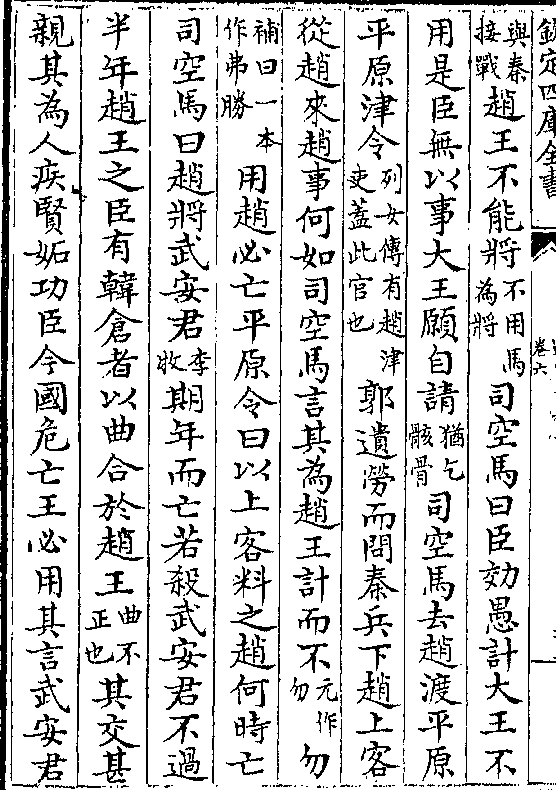 欽定四庫全書
卷六
與秦接戰趙王不能將不用馬為將司空馬曰臣効愚計大王不
用是臣無以事大王願自請猶乞骸骨司空馬去趙渡平原
平原津令列女傳有趙津吏蓋此官也郭遺勞而問秦兵下趙上客
從趙來趙事何如司空馬言其為趙王計而不元作勿勿
補曰一本作弗勝用趙必亡平原令曰以上客料之趙何時亡
司空馬曰趙將武安君李牧期年而亡若殺武安君不過
半年趙王之臣有韓倉者以曲合於趙王曲不正也其交甚
親其為人疾賢妬功臣今國危亡王必用其言武安君